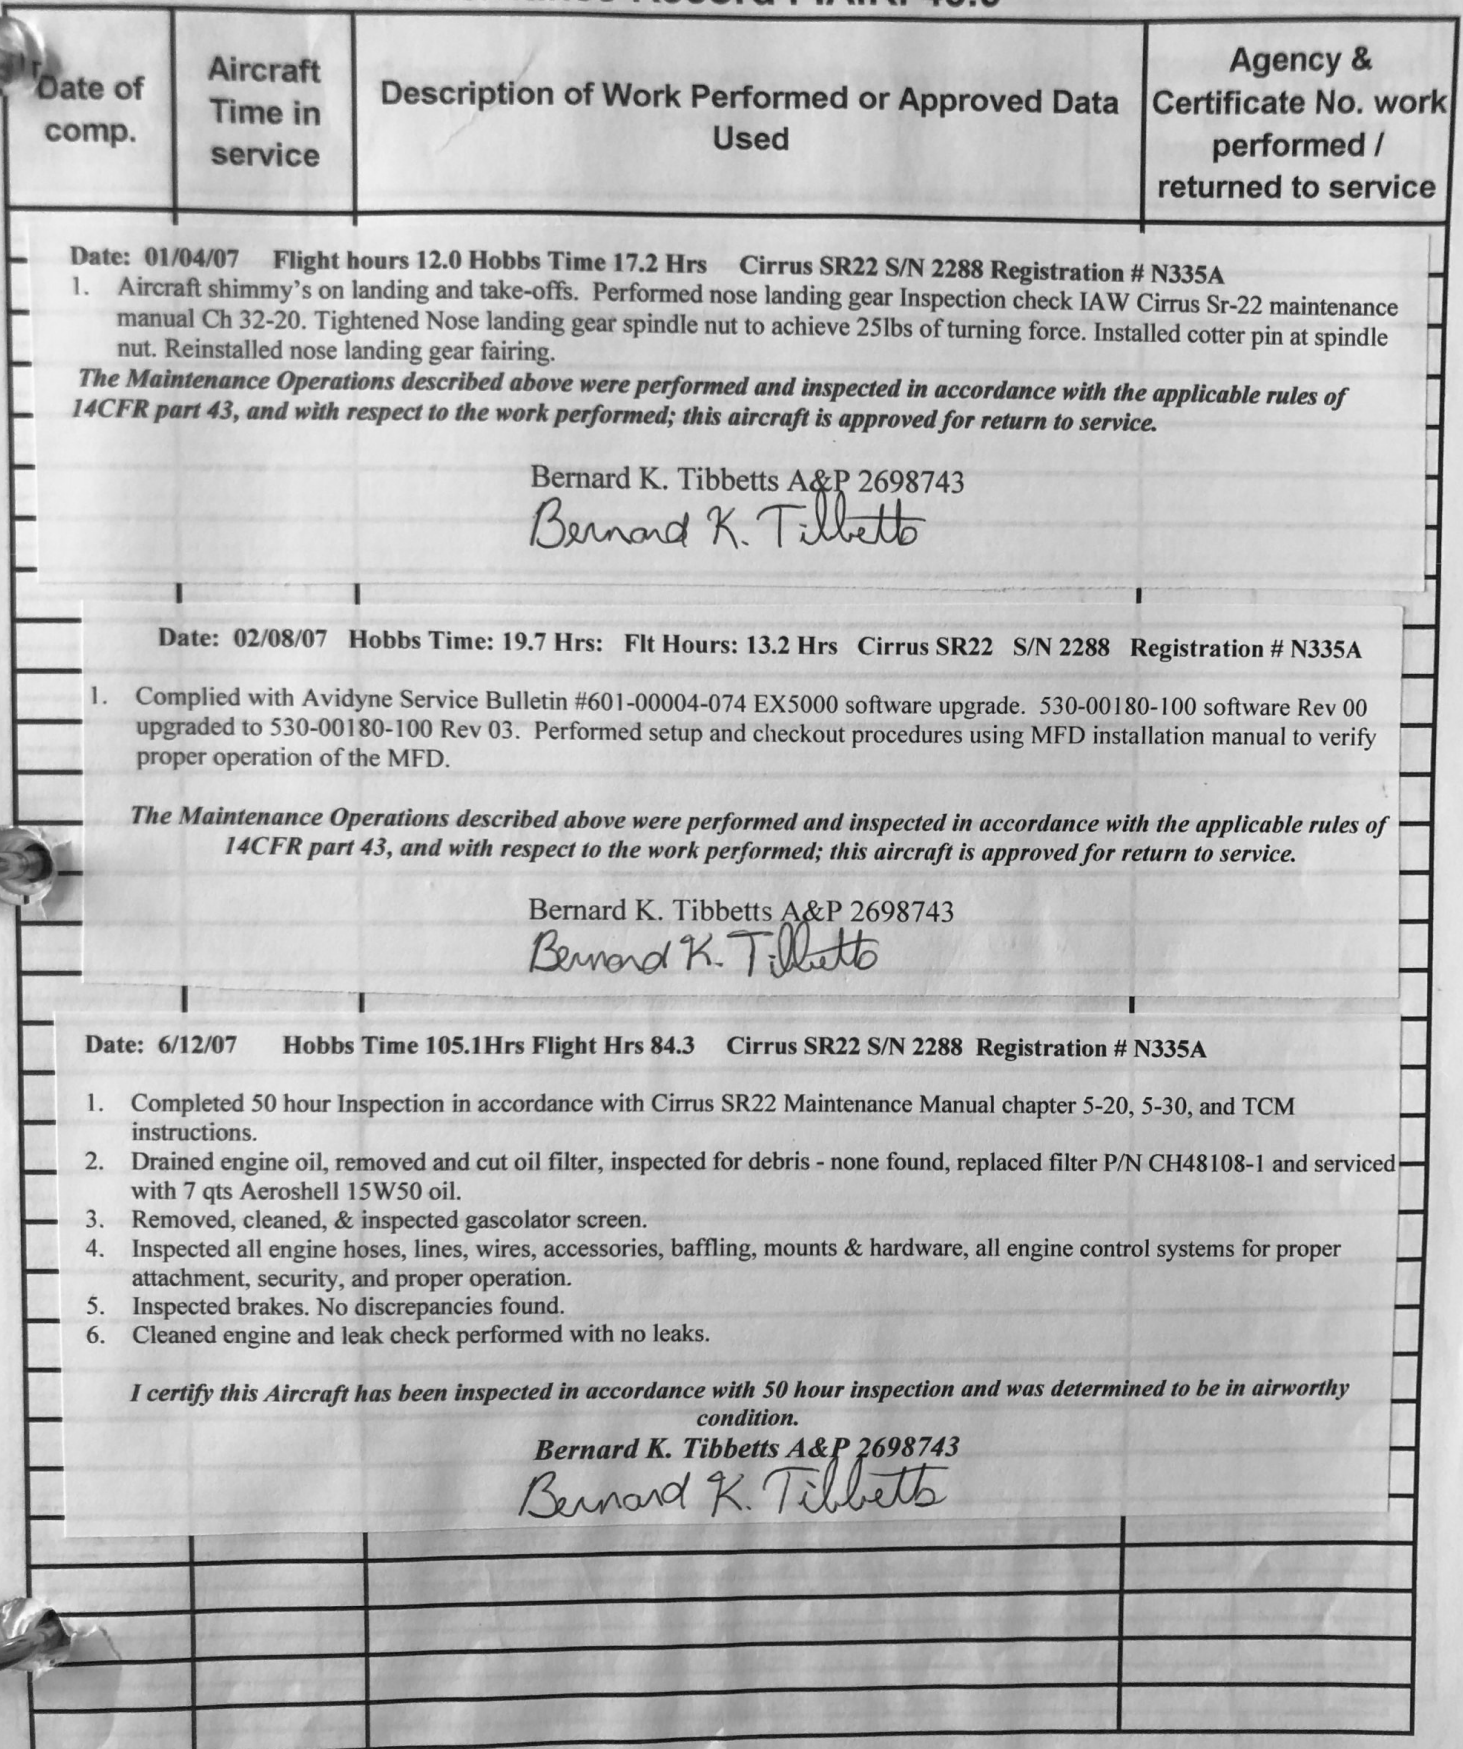 Date of comp.
Aircraft Time in service
Description of Work Performed or Approved Data Used
Agency & Certificate No. work performed / returned to service
Date: 01/04/07 Flight hours 12.0 Hobbs Time 17.2 Hrs Cirrus SR22 S/N 2288 Registration # N335A
1. Aircraft shimmy's on landing and take-offs. Performed nose landing gear Inspection check IAW Cirrus Sr-22 maintenance
manual Ch 32-20. Tightened Nose landing gear spindle nut to achieve 25lbs of turning force. Installed cotter pin at spindle
nut. Reinstalled nose landing gear fairing.
The Maintenance Operations described above were performed and inspected in accordance with the applicable rules of
14CFR part 43, and with respect to the work performed; this aircraft is approved for return to service.
Bernard K. Tibbetts A&P 2698743
Bernard K. Tibbetts
Date: 02/08/07 Hobbs Time: 19.7 Hrs: Flt Hours: 13.2 Hrs Cirrus SR22 S/N 2288 Registration # N335A
1. Complied with Avidyne Service Bulletin #601-00004-074 EX5000 software upgrade. 530-00180-100 software Rev 00
upgraded to 530-00180-100 Rev 03. Performed setup and checkout procedures using MFD installation manual to verify
proper operation of the MFD.
The Maintenance Operations described above were performed and inspected in accordance with the applicable rules of
14CFR part 43, and with respect to the work performed; this aircraft is approved for return to service.
Bernard K. Tibbetts A&P 2698743
Bernard K. Tibbetts
Date: 6/12/07 Hobbs Time 105.1Hrs Flight Hrs 84.3 Cirrus SR22 S/N 2288 Registration # N335A
1. Completed 50 hour Inspection in accordance with Cirrus SR22 Maintenance Manual chapter 5-20, 5-30, and TCM
instructions.
2. Drained engine oil, removed and cut oil filter, inspected for debris - none found, replaced filter P/N CH48108-1 and serviced
with 7 qts Aeroshell 15W50 oil.
3. Removed, cleaned, & inspected gascolator screen.
4. Inspected all engine hoses, lines, wires, accessories, baffling, mounts & hardware, all engine control systems for proper
attachment, security, and proper operation.
5. Inspected brakes. No discrepancies found.
6. Cleaned engine and leak check performed with no leaks.
I certify this Aircraft has been inspected in accordance with 50 hour inspection and was determined to be in airworthy
condition.
Bernard K. Tibbetts A&P 2698743
Bernard K. Tibbetts